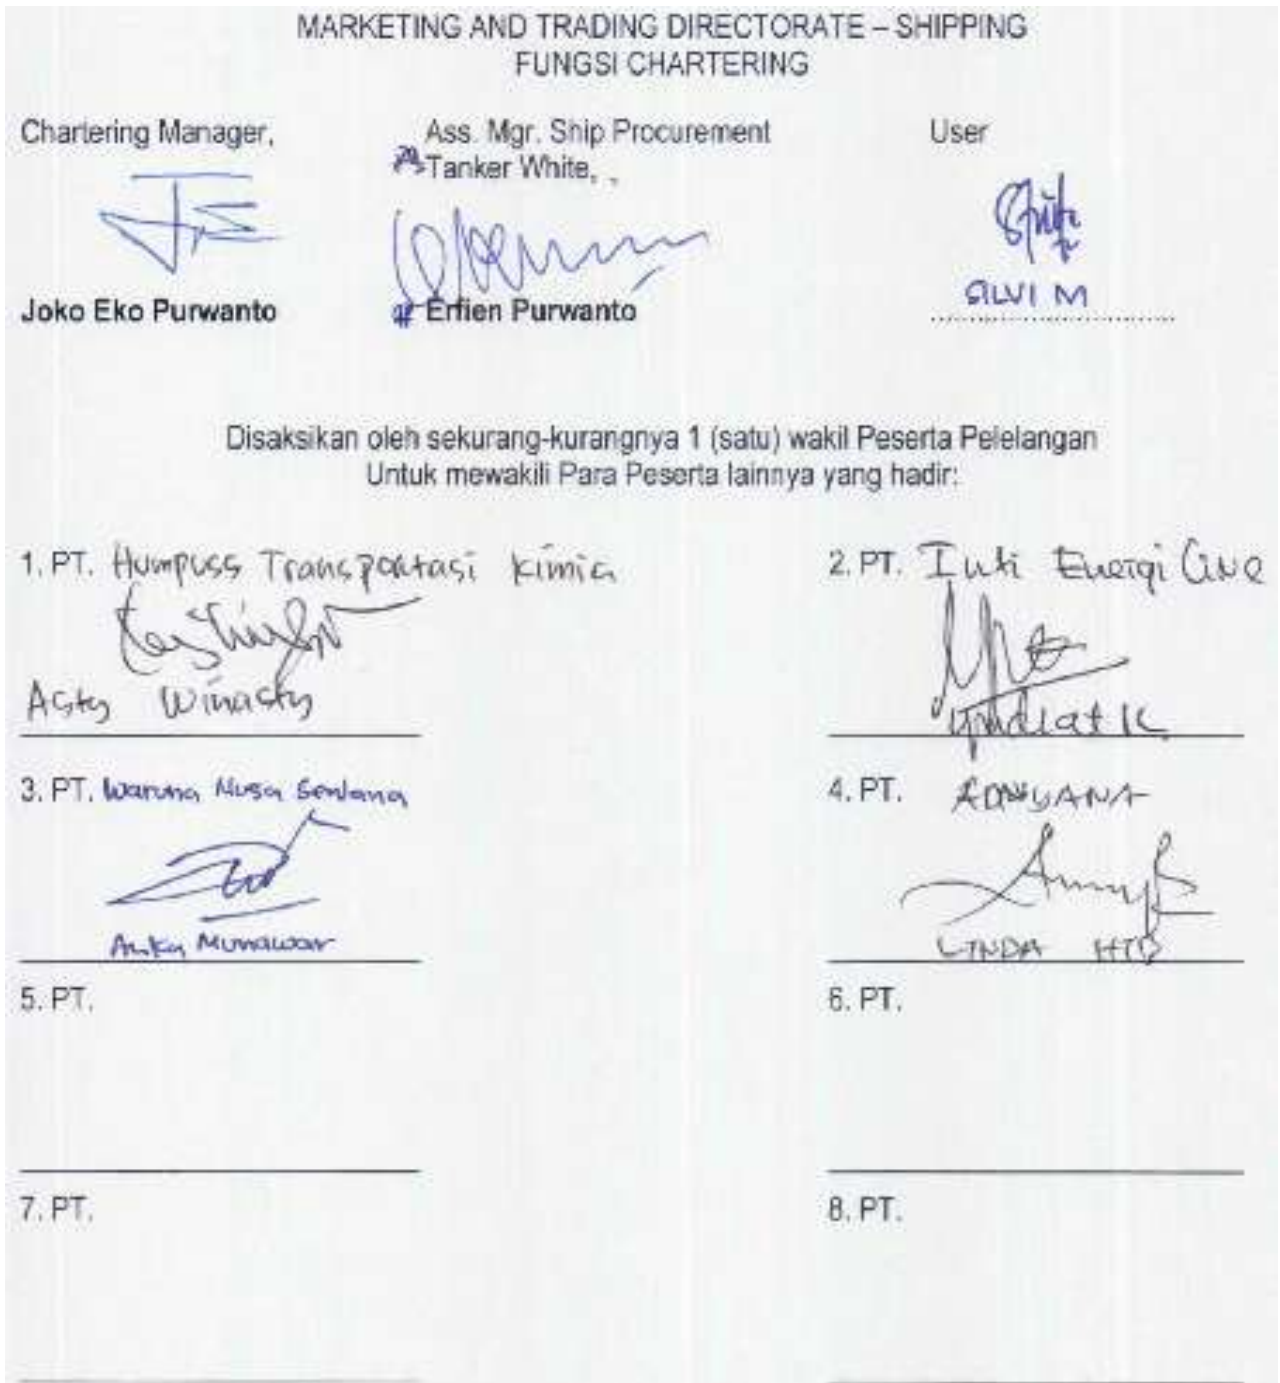 MARKETING AND TRADING DIRECTORATE – SHIPPING
FUNGSI CHARTERING
Chartering Manager,
Ass. Mgr. Ship Procurement
Tanker White,
User
Joko Eko Purwanto
Erfien Purwanto
SILVI M
Disaksikan oleh sekurang-kurangnya 1 (satu) wakil Peserta Pelelangan
Untuk mewakili Para Peserta lainnya yang hadir:
1. PT. Humpuss Transportasi Kimia
Asty Winasty
2. PT. Inti Energi Line
3. PT. Waruna Nusa Sentana
Munawar
4. PT. ADNYANA
LINDA
5. PT.
6. PT.
7. PT.
8. PT.